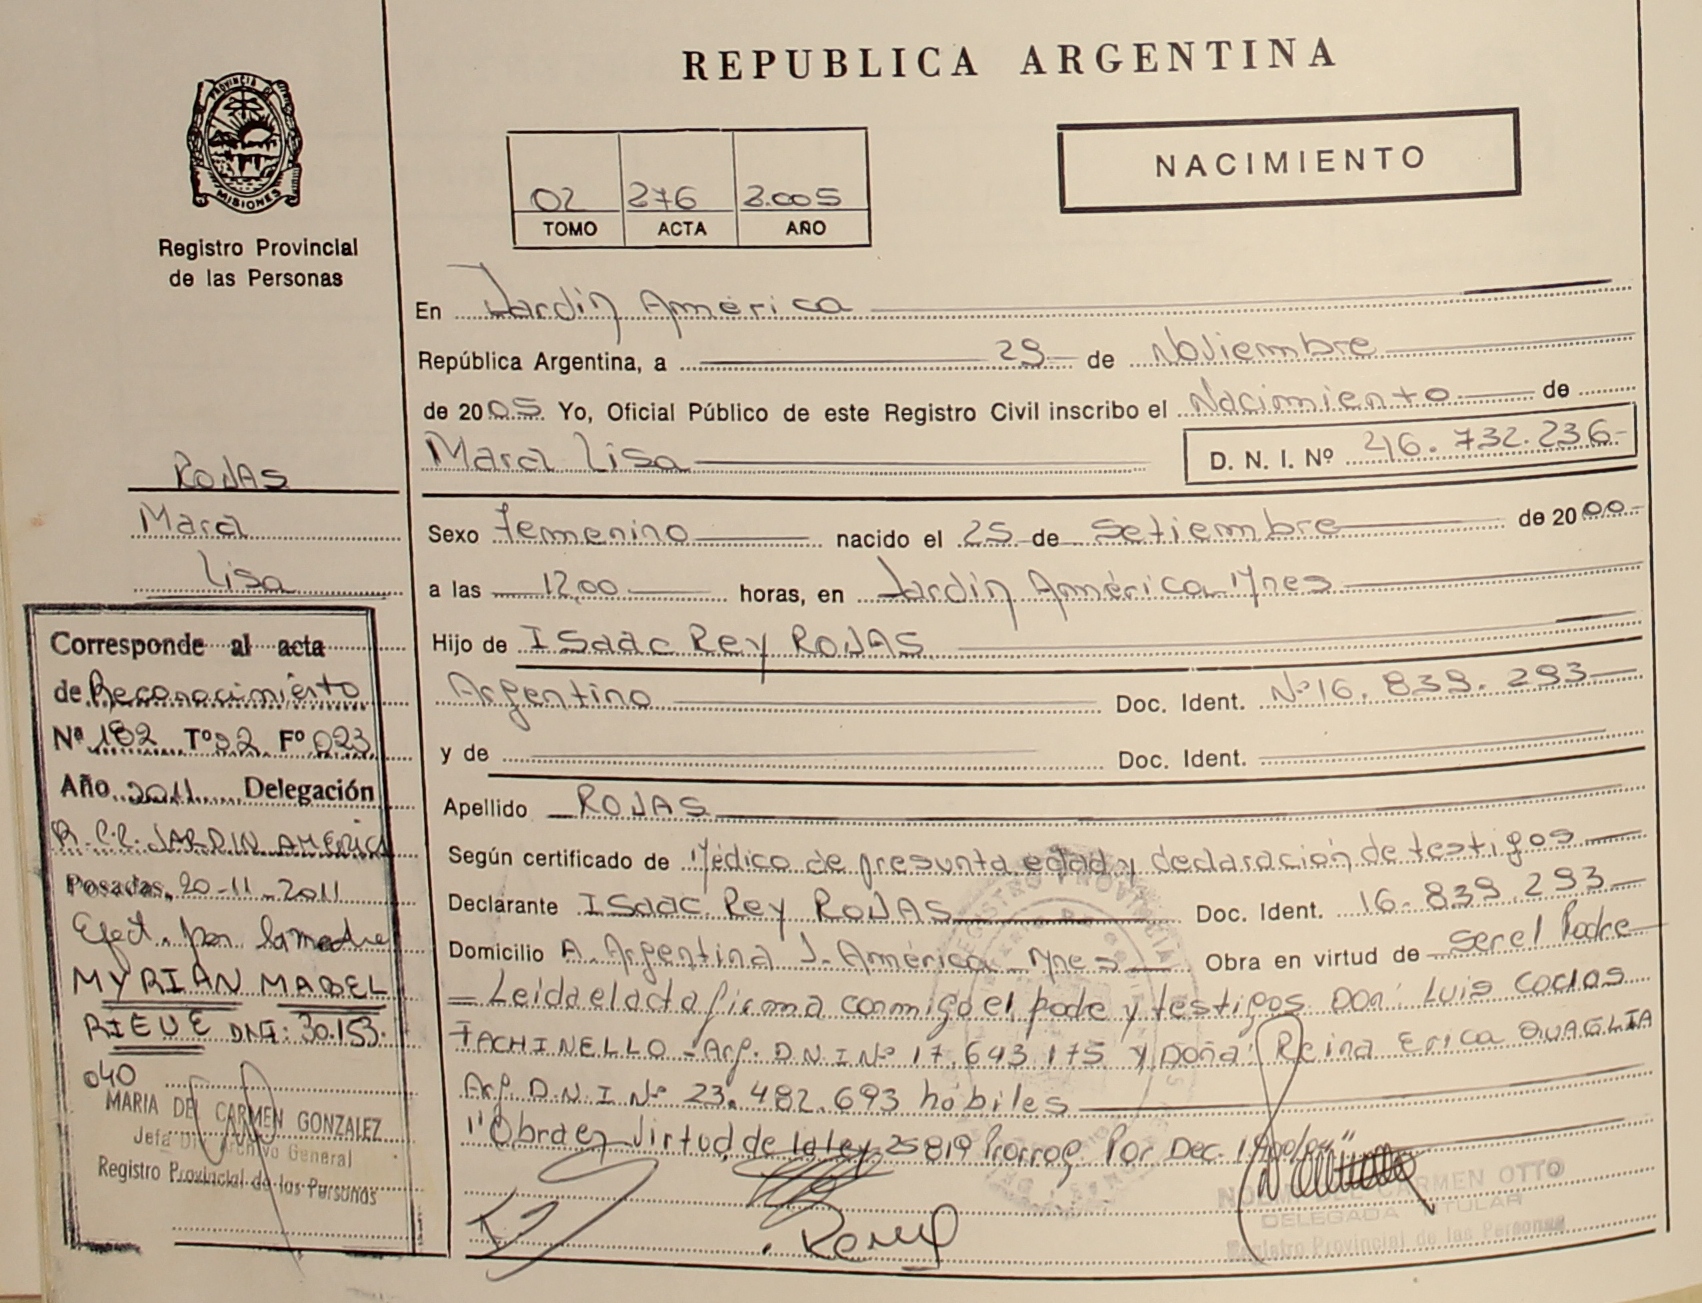 REPUBLICA ARGENTINA
PROVINCIA DE MISIONES
Registro Provincial
de las Personas
NACIMIENTO
02 276 2.005
TOMO ACTA AÑO
En Jardín América
República Argentina, a 29 de Noviembre
de 2005 Yo, Oficial Público de este Registro Civil inscribo el Nacimiento de
Marca Lisa D. N. I. Nº 46.732.236-
Sexo Femenino nacido el 25 de Setiembre de 2000-
a las 12,00 horas, en Jardín América Mnes
Hijo de Isaac Rey ROJAS
Argentino Doc. Ident. Nº 16.839.293
y de Doc. Ident.
Apellido ROJAS
Según certificado de Médico de presunta edad y declaración de testigos
Declarante Isaac Rey ROJAS Doc. Ident. 16.839.293
Domicilio A. Argentina J. América Mnes Obra en virtud de ser el Padre
Leida el acta firma conmigo el padre y testigos Don: Luis Carlos
FACHINELLO - Arg. D.N.I Nº 17.643.175 y Doña: Reina Erica QUAGLIA
Arg. D.N.I Nº 23.482.693 hábiles
"Obra en virtud de la ley 25819 Prorrog. Por Dec.
ROJAS
Marca
Lisa
Corresponde al acta
de Reconocimiento
Nº 182 Tº 02 Fº 023
Año 2011 Delegación
R.P.P. JARDIN AMERICA
Posadas, 20-11-2011
Efect. por la madre
MYRIAN MABEL
RIEUE DNI: 30.153.
040
MARIA DEL CARMEN GONZALEZ
Jefa Div. Archivo General
Registro Provincial de las Personas
CARMEN OTTO
DELEGADA TITULAR
Registro Provincial de las Personas